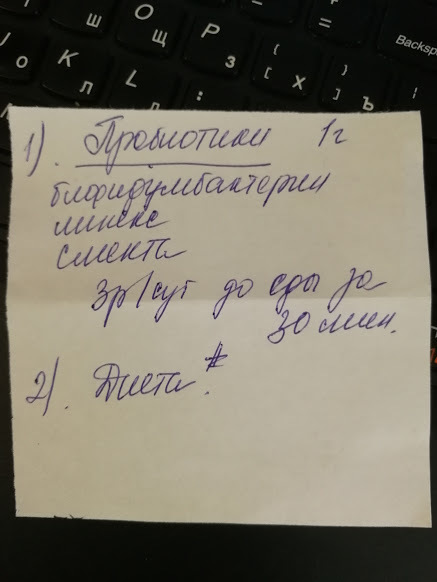 Backsp
Ш O Щ P З { [ Х } ] Ъ = К Л L Д :
1). Пробиотики 1г
бифидумбактерин
линекс
смекта
3р/сут до еды за
30 мин.
2). Диета.*